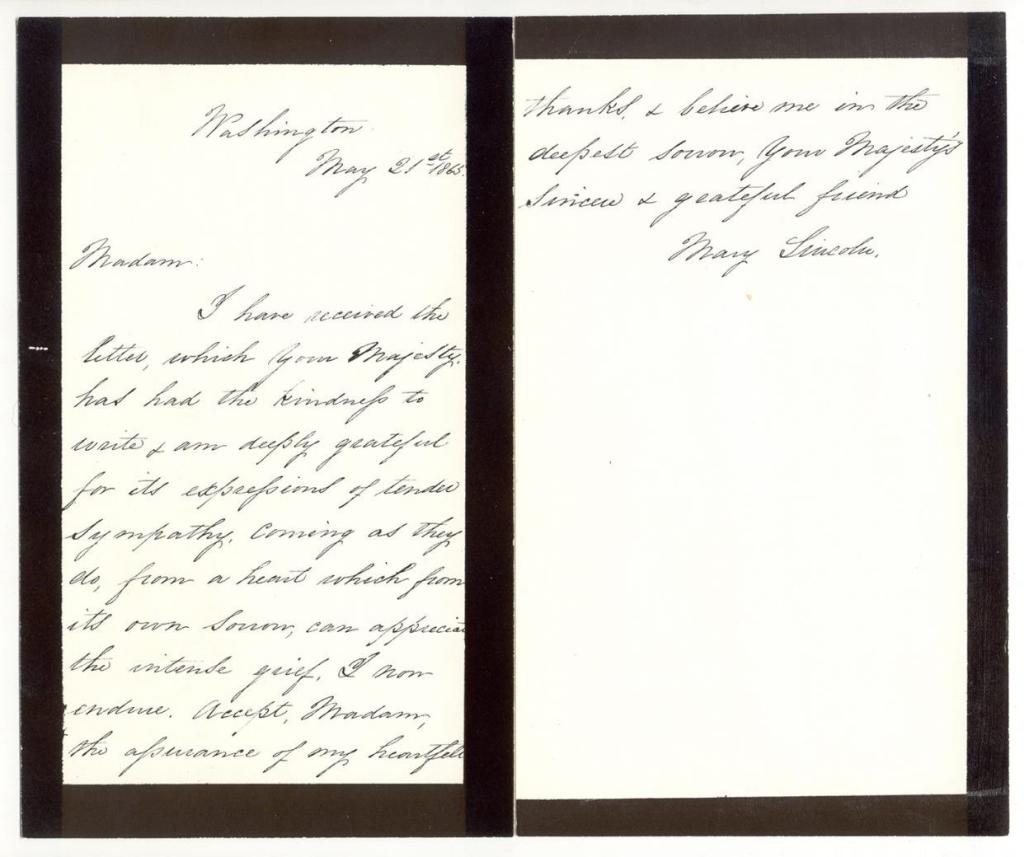 Washington
May 21st 1865.
Madam:
I have received the
letter, which Your Majesty.
has had the kindness to
write & am deeply grateful
for its expressions of tender
sympathy, coming as they
do, from a heart which from
its own sorrow, can apprecia
the intense grief, I now
endure. Accept, Madam,
the assurance of my heartfelt
thanks, & believe me in the
deepest sorrow, Your Majesty's
Sincere & grateful friend
Mary Lincoln.